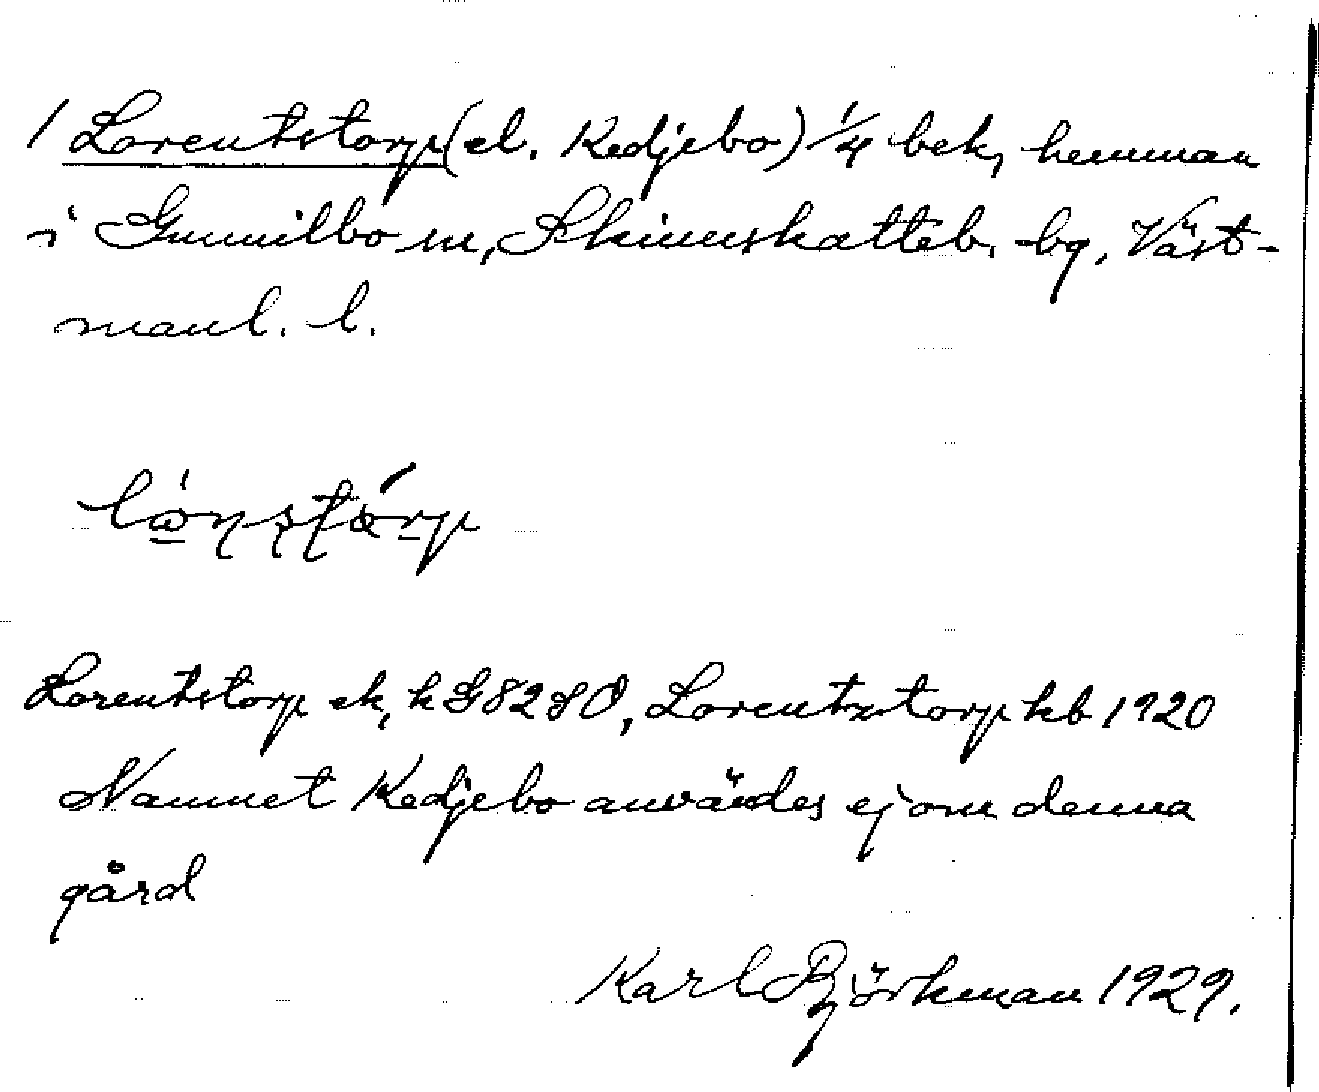 1 Lorentstorp (el. Kedjebo) 1/4 bek, hemman
i Gunnilbo sn, Skinnskatteb. bg. Väst-
manl. l.
Lorentstorp ek, k G8280, Lorentztorp kb 1920
Namnet Kedjebo användes ej om denna
gård
Karl Björkman 1929.